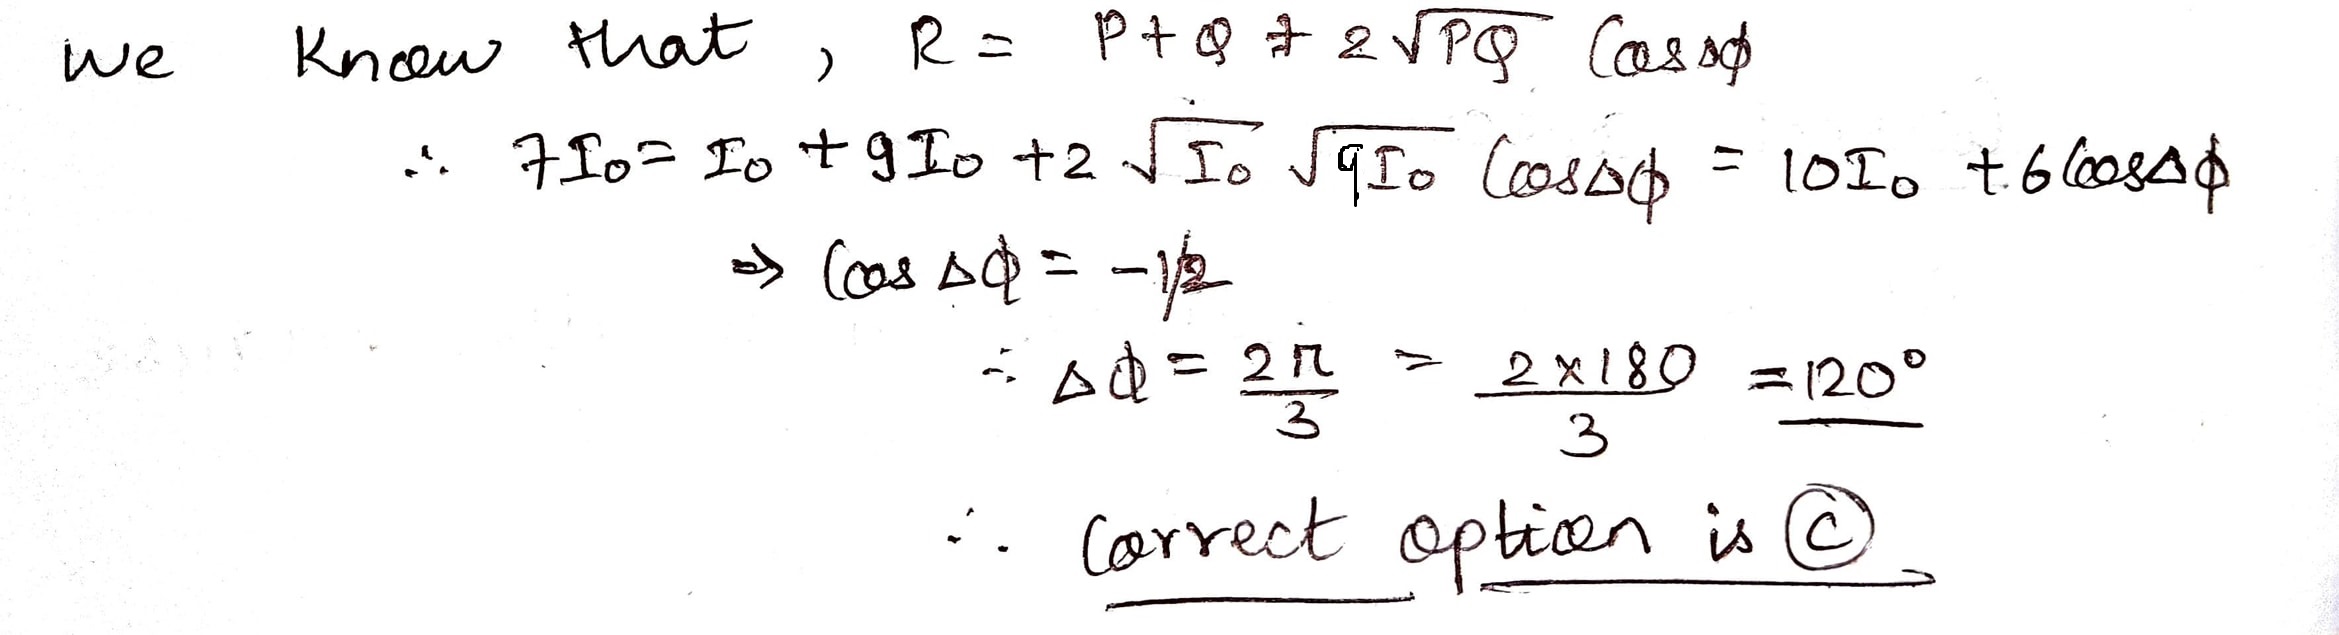 We know that , R = P + Q + 2√PQ Cos Δϕ
∴ 7I₀ = I₀ + 9I₀ + 2 √I₀ √9I₀ Cos Δϕ = 10I₀ + 6 Cos Δϕ
⇒ Cos Δϕ = -1/2
∴ Δϕ = 2π/3 = 2×180/3 = 120°
∴ Correct option is Ⓒ